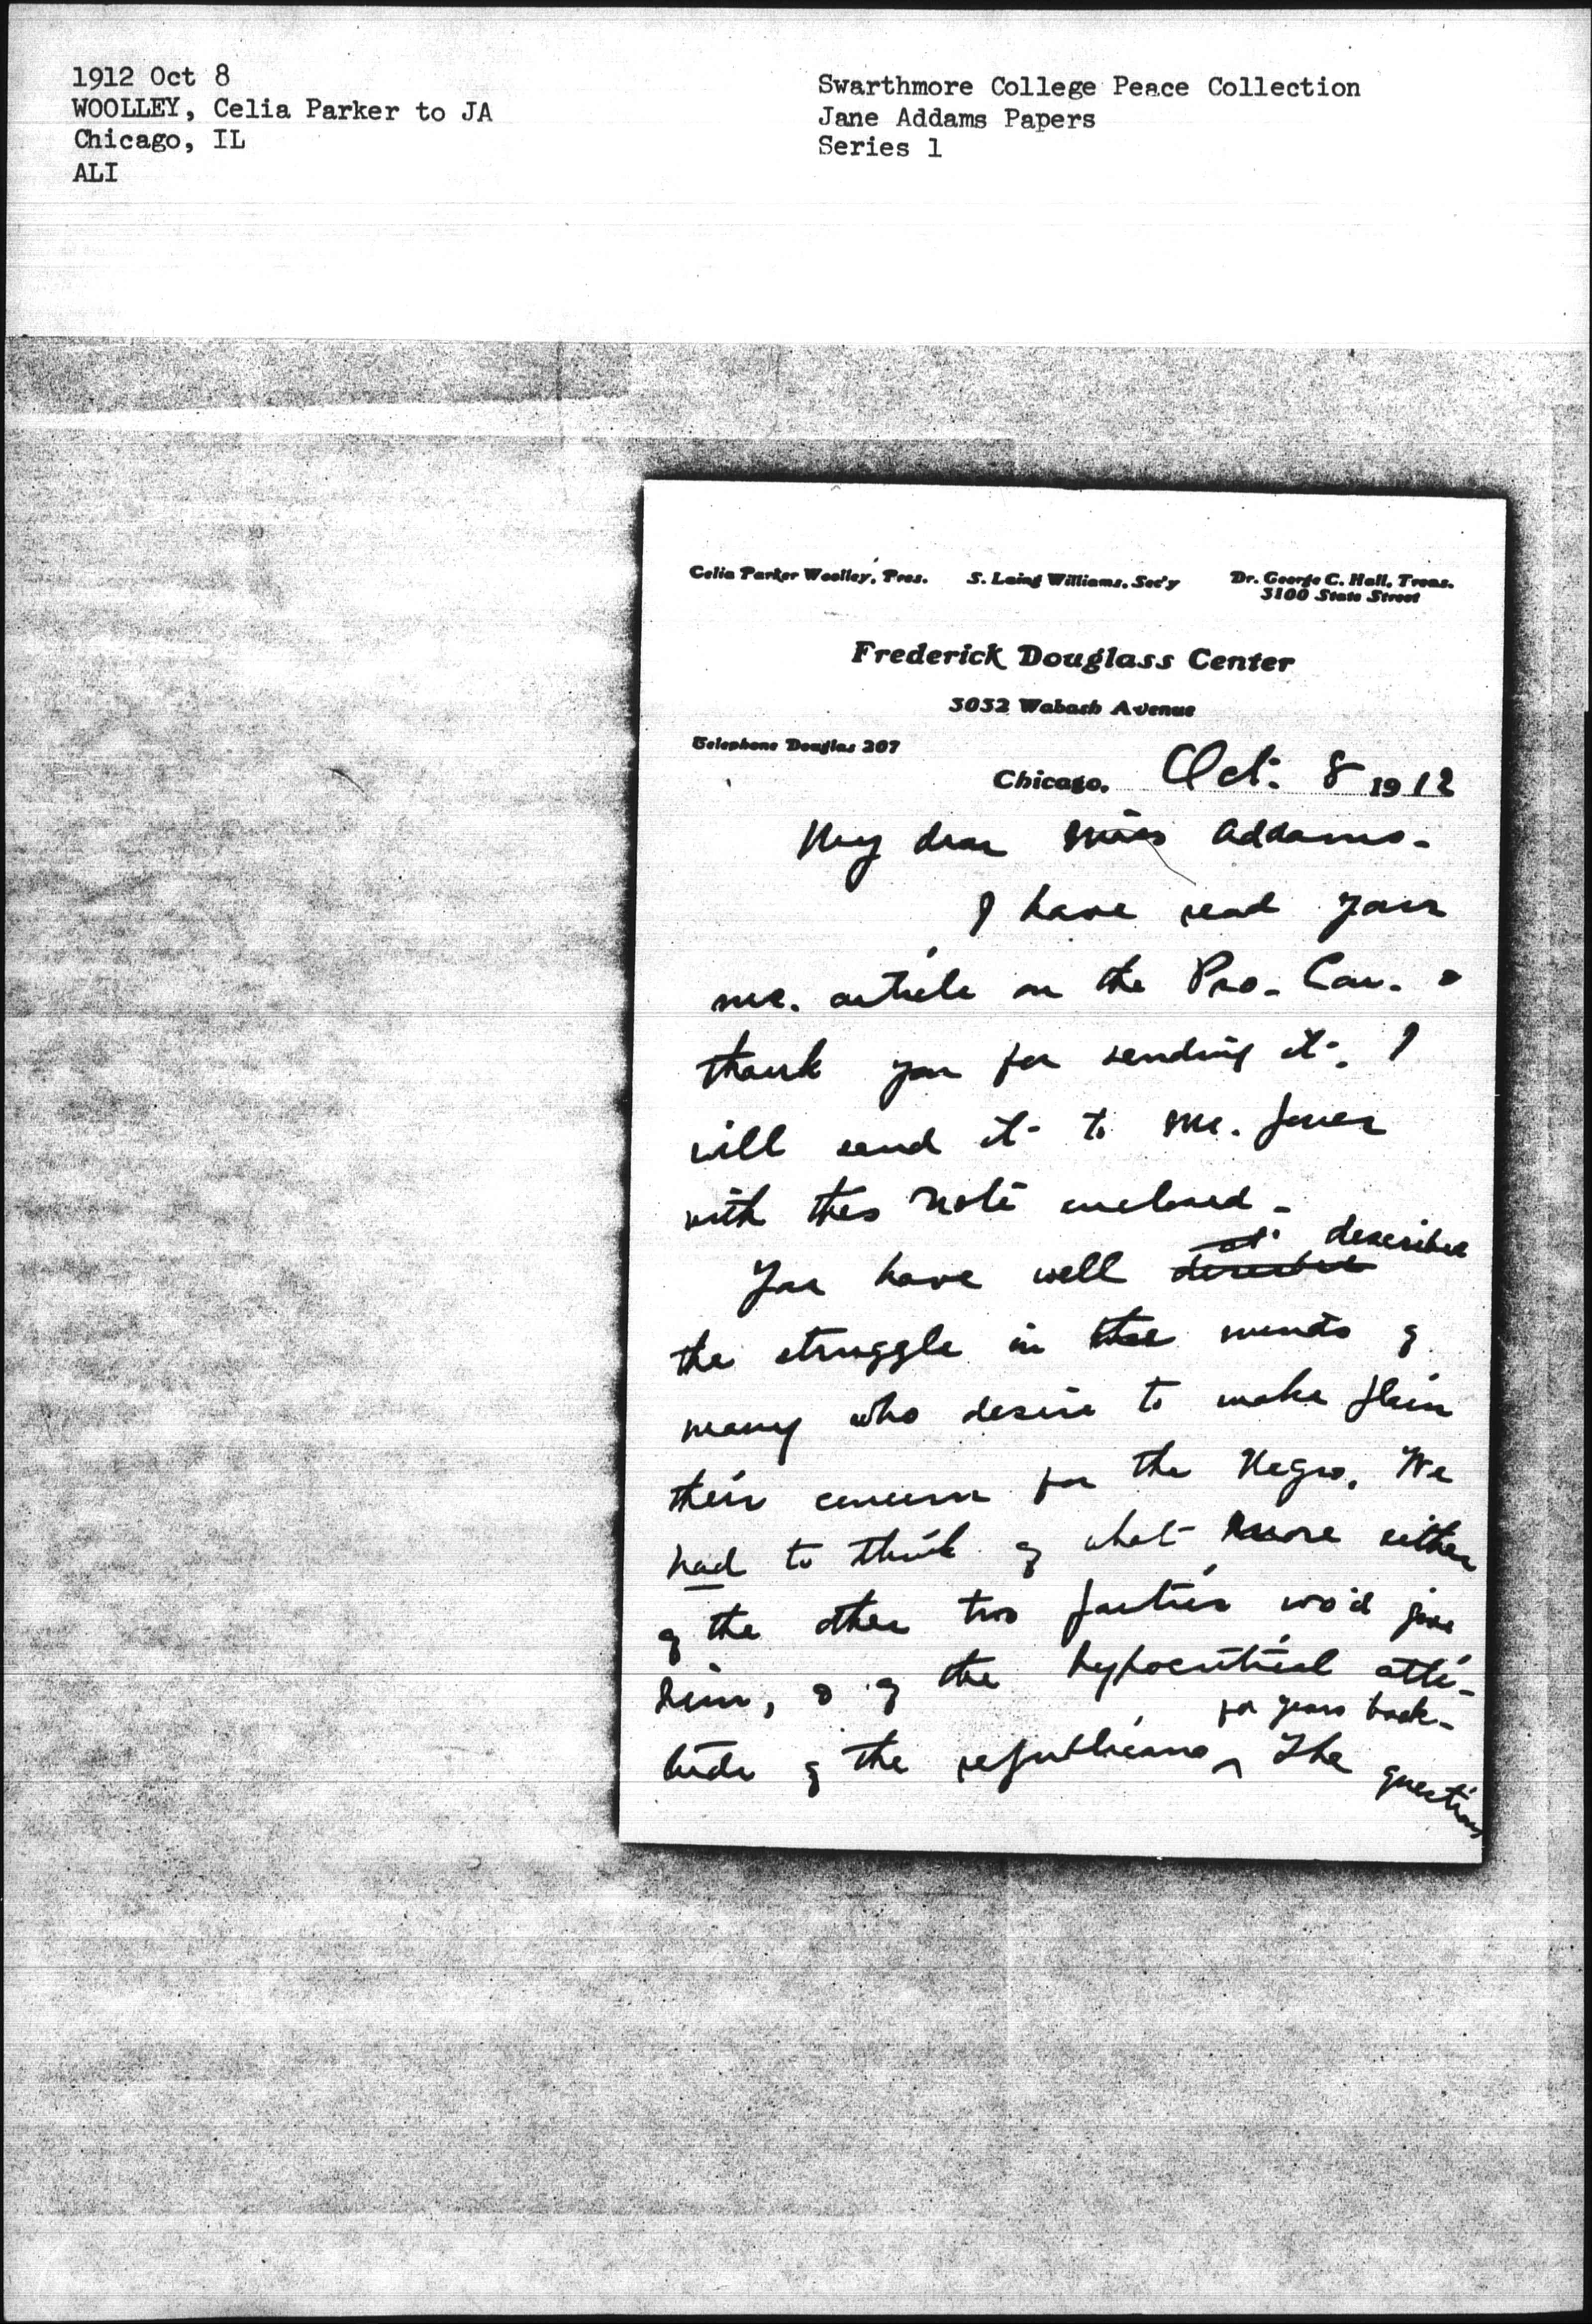 1912 Oct 8
WOOLLEY, Celia Parker to JA
Chicago, IL
ALI
Swarthmore College Peace Collection
Jane Addams Papers
Series 1
Celia Parker Woolley, Pres. S. Laing Williams, Sec'y Dr. George C. Hall, Treas.
3100 State Street
Frederick Douglass Center
3032 Wabash Avenue
Telephone Douglas 207
Chicago, Oct. 8 1912
My dear Miss Addams.
I have read your
article on the Pro. Con. &
thank you for sending it. I
will send it to Mr. Jones
with this note enclosed.
You have well described
the struggle in the minds of
many who desire to make plain
their concern for the Negro. We
had to think of what more either
of the other two parties wo'd give
him, & of the hypocritical atti-
for years back.
tude of the republicans ^ The question